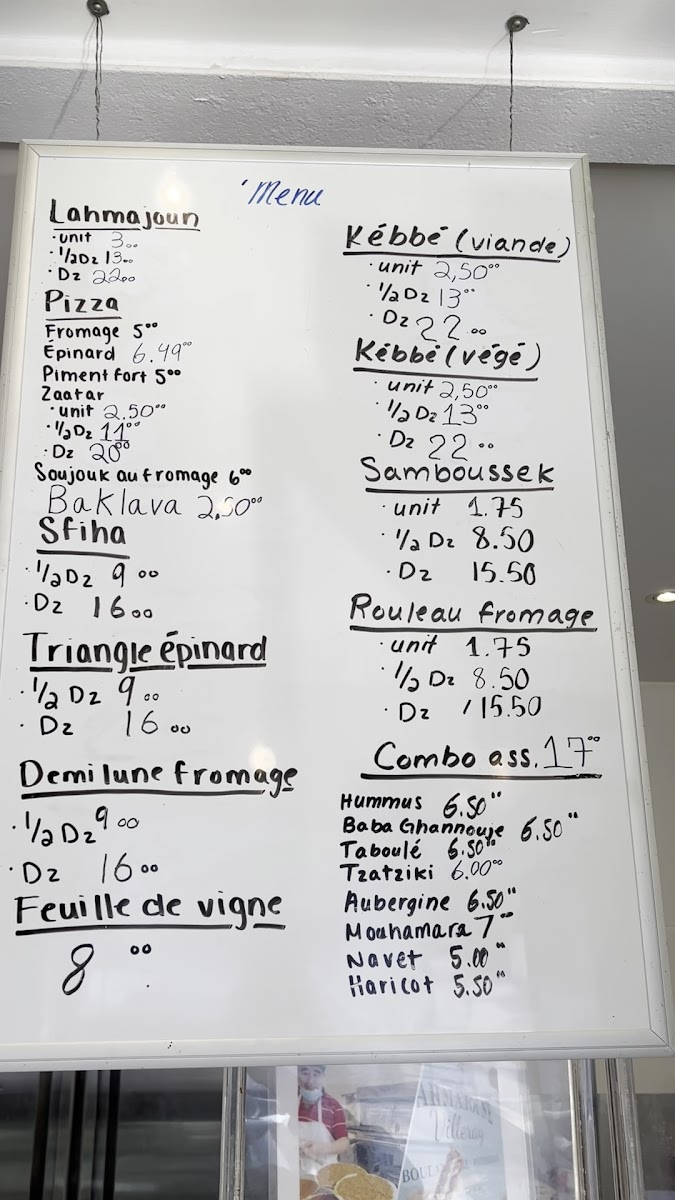 Menu
Lahmajoun
· unit 3.00
· 1/2 Dz 13.00
· Dz 22.00
Pizza
Fromage 5°°
Épinard 6.49°°
Piment fort 5°°
Zaatar
· unit 2.50°°
· 1/2 Dz 11°°
· Dz 20°°
Soujouk au fromage 6°°
Baklava 2,50°°
Sfiha
· 1/2 Dz 9 °°
· Dz 16 °°
Triangle épinard
· 1/2 Dz 9 °°
· Dz 16 °°
Demi lune fromage
· 1/2 Dz 9 °°
· Dz 16 °°
Feuille de vigne
8 °°
Kébbé (viande)
· unit 2,50°°
· 1/2 Dz 13°°
· Dz 22 °°
Kébbé (végé)
· unit 2,50°°
· 1/2 Dz 13°°
· Dz 22 °°
Samboussek
· unit 1.75
· 1/2 Dz 8.50
· Dz 15.50
Rouleau fromage
· unit 1.75
· 1/2 Dz 8.50
· Dz 15.50
Combo ass. 17°°
Hummus 6.50"
Baba Ghannouje 6.50"
Taboulé 6.50"
Tzatziki 6.00°°
Aubergine 6.50"
Mouhamara 7"
Navet 5.00"
Haricot 5.50"
Villeray